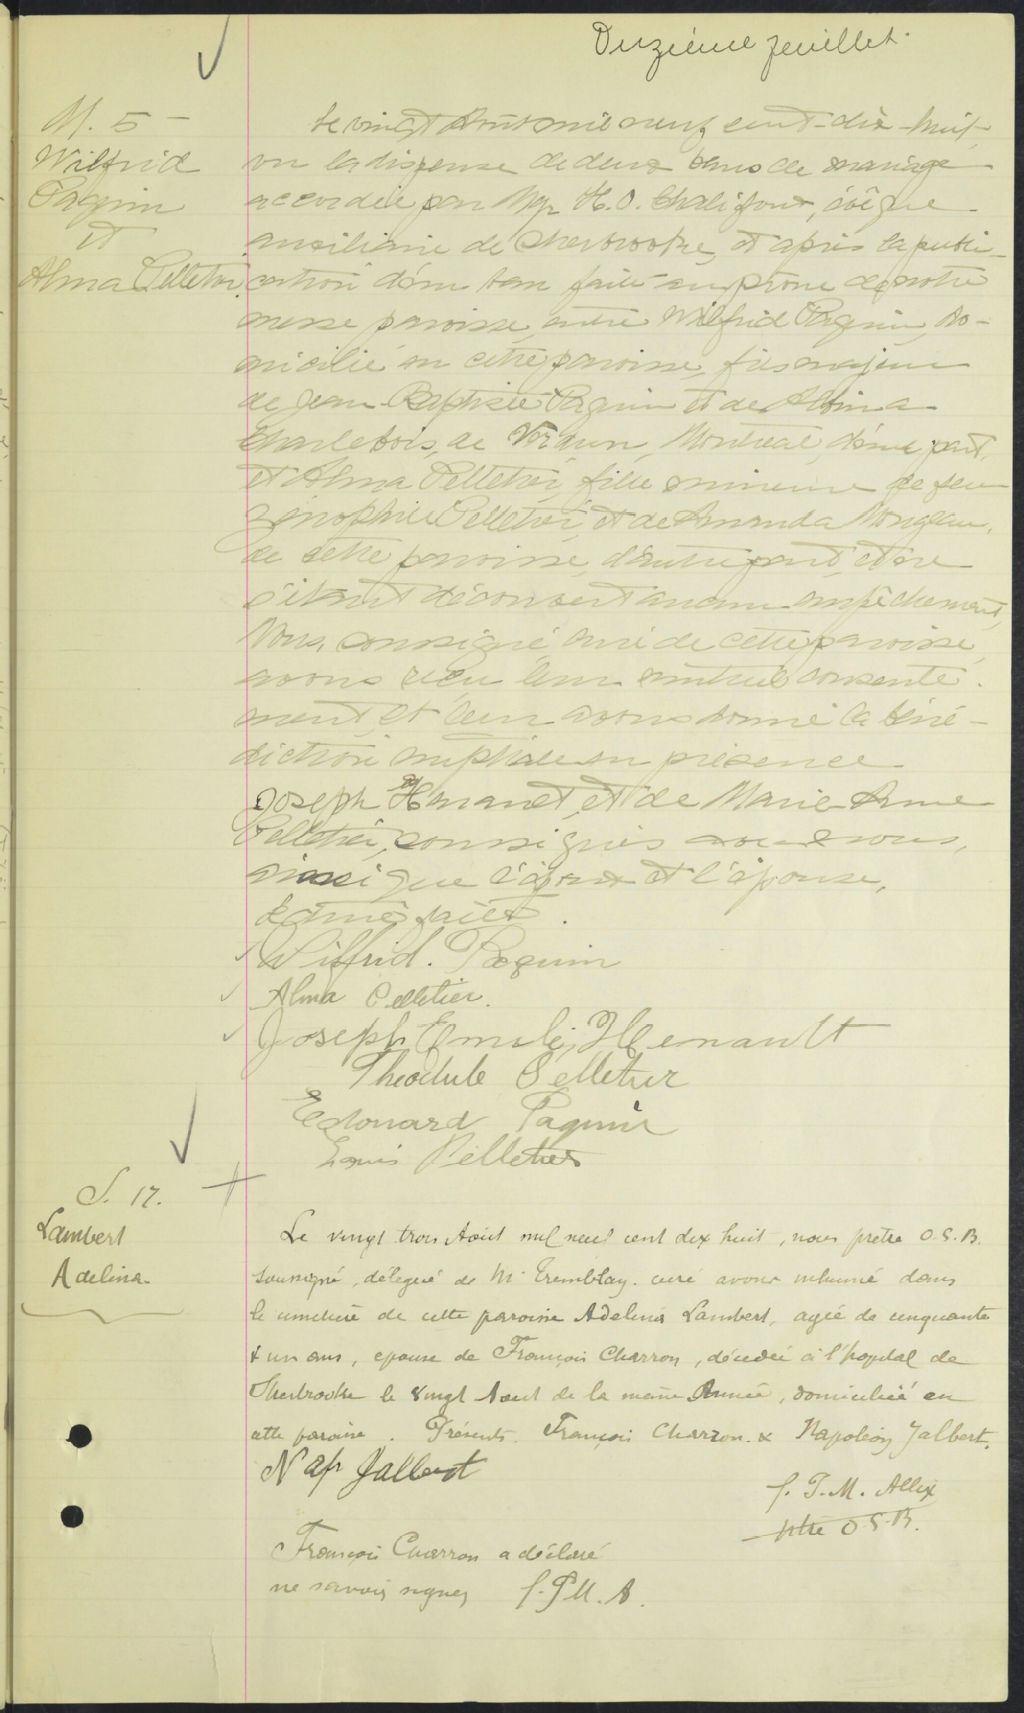 Onzième feuillet.
M. 5 –
Wilfrid
Paquin
et
Alma Pelletier
Le vingt Août mil neuf cent dix-huit,
vu la dispense de deux bans de mariage
accordée par Mgr H. O. Chalifoux, évêque
auxiliaire de Sherbrooke, et après la publi-
cation d'un ban faite au prône de notre
messe paroisse, entre Wilfrid Paquin, do-
micilié en cette paroisse, fils majeur
de Jean Baptiste Paquin et de Albina
Charlebois, de Verdun, Montréal, d'une part,
et Alma Pelletier, fille mineure de feu
Zénophile Pelletier, et de Amanda Mongeau,
de cette paroisse, d'autre part, et ne
s'étant découvert aucun empêchement,
Nous, soussigné, curé de cette paroisse,
avons reçu leur mutuel consente-
ment, et leur avons donné la béné-
diction nuptiale en présence
Joseph Hananet, et de Marie-Anne
Pelletier, soussignés avec nous,
ainsi que l'époux et l'épouse,
Lecture faite.
Wilfrid. Paquin
Alma Pelletier.
Joseph Emile Henault
Theodule Pelletier
Edouard Paquin
Louis Pelletier
S. 17.
Lambert
Adelina
Le vingt trois Août mil neuf cent dix huit, nous prêtre O.S.B.
soussigné, délégué de Mr Tremblay. curé avons inhumé dans
le cimetière de cette paroisse Adelina Lambert, agée de cinquante
& un ans, epouse de François Charron, décédée à l'hopital de
Sherbrooke le vingt Aout de la même Année, domiciliée en
cette paroisse. Présents. François Charron. & Napoléon Jalbert.
Nap Jalbert
f. J. M. Allix
ptre O.S.B.
François Charron a déclaré
ne savoir signer f. J M. A.